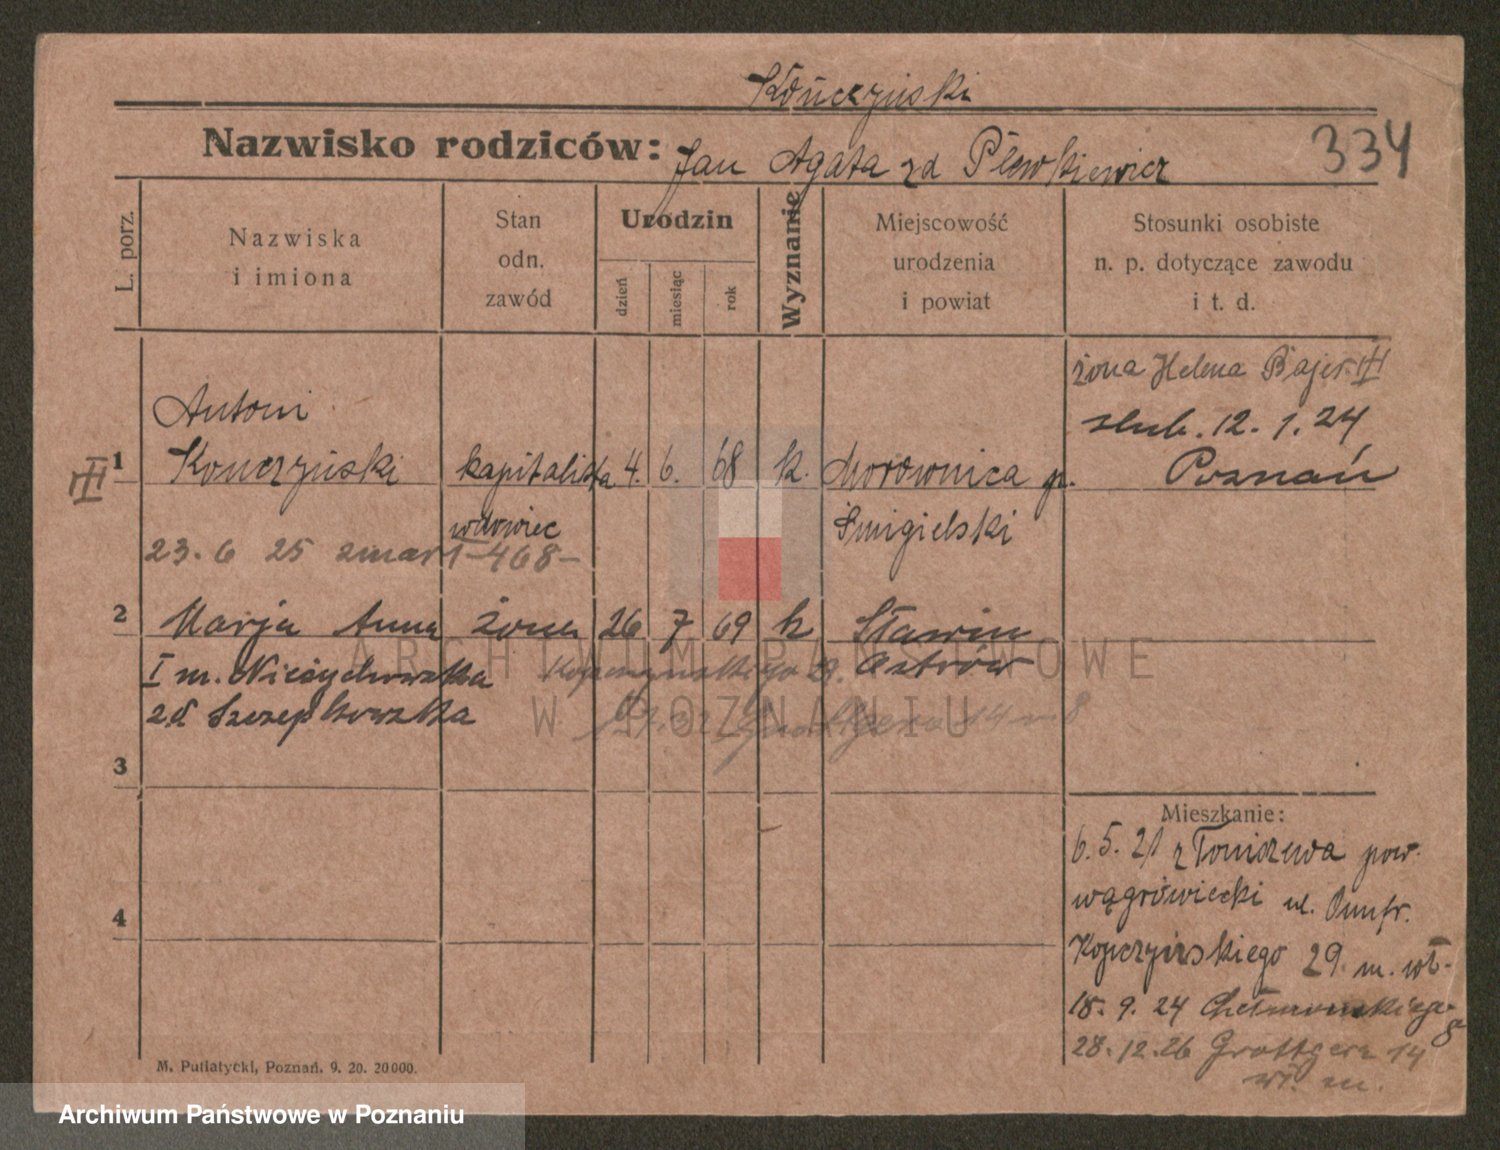 Kończyński
Nazwisko rodziców: Jan Agata zd Plewkiewicz
334
L. porz.
Nazwiska i imiona
Stan odn. zawód
Urodzin
dzień
miesiąc
rok
Wyznanie
Miejscowość urodzenia i powiat
Stosunki osobiste n. p. dotyczące zawodu i t. d.
żona Helena Bajer III
ślub. 12. 1. 24
Poznań
Antoni
III 1 Konczyński kapitalista 4. 6. 68 k. Morownica p.
wdowiec Śmigielski
23. 6 25 zmar 1-468-
2 Marja Anna żona 26 7 69 k Sławin
I m. Niezychowska Kopczynskiego 29. Ostrów
zd. Szczepkowska Grottgera 14 m 8
3
Mieszkanie:
6. 5. 21 z Toniszewa pow.
wągrówiecki ul. Onufr.
Kopczyńskiego 29. m. wł.
18. 9. 24 Chełmońskiego 8
28. 12. 26 Grottgera 14
wł. m.
4
M. Putiatycki, Poznań, 9. 20. 20000.
ARCHIWUM PAŃSTWOWE
W POZNANIU
Archiwum Państwowe w Poznaniu